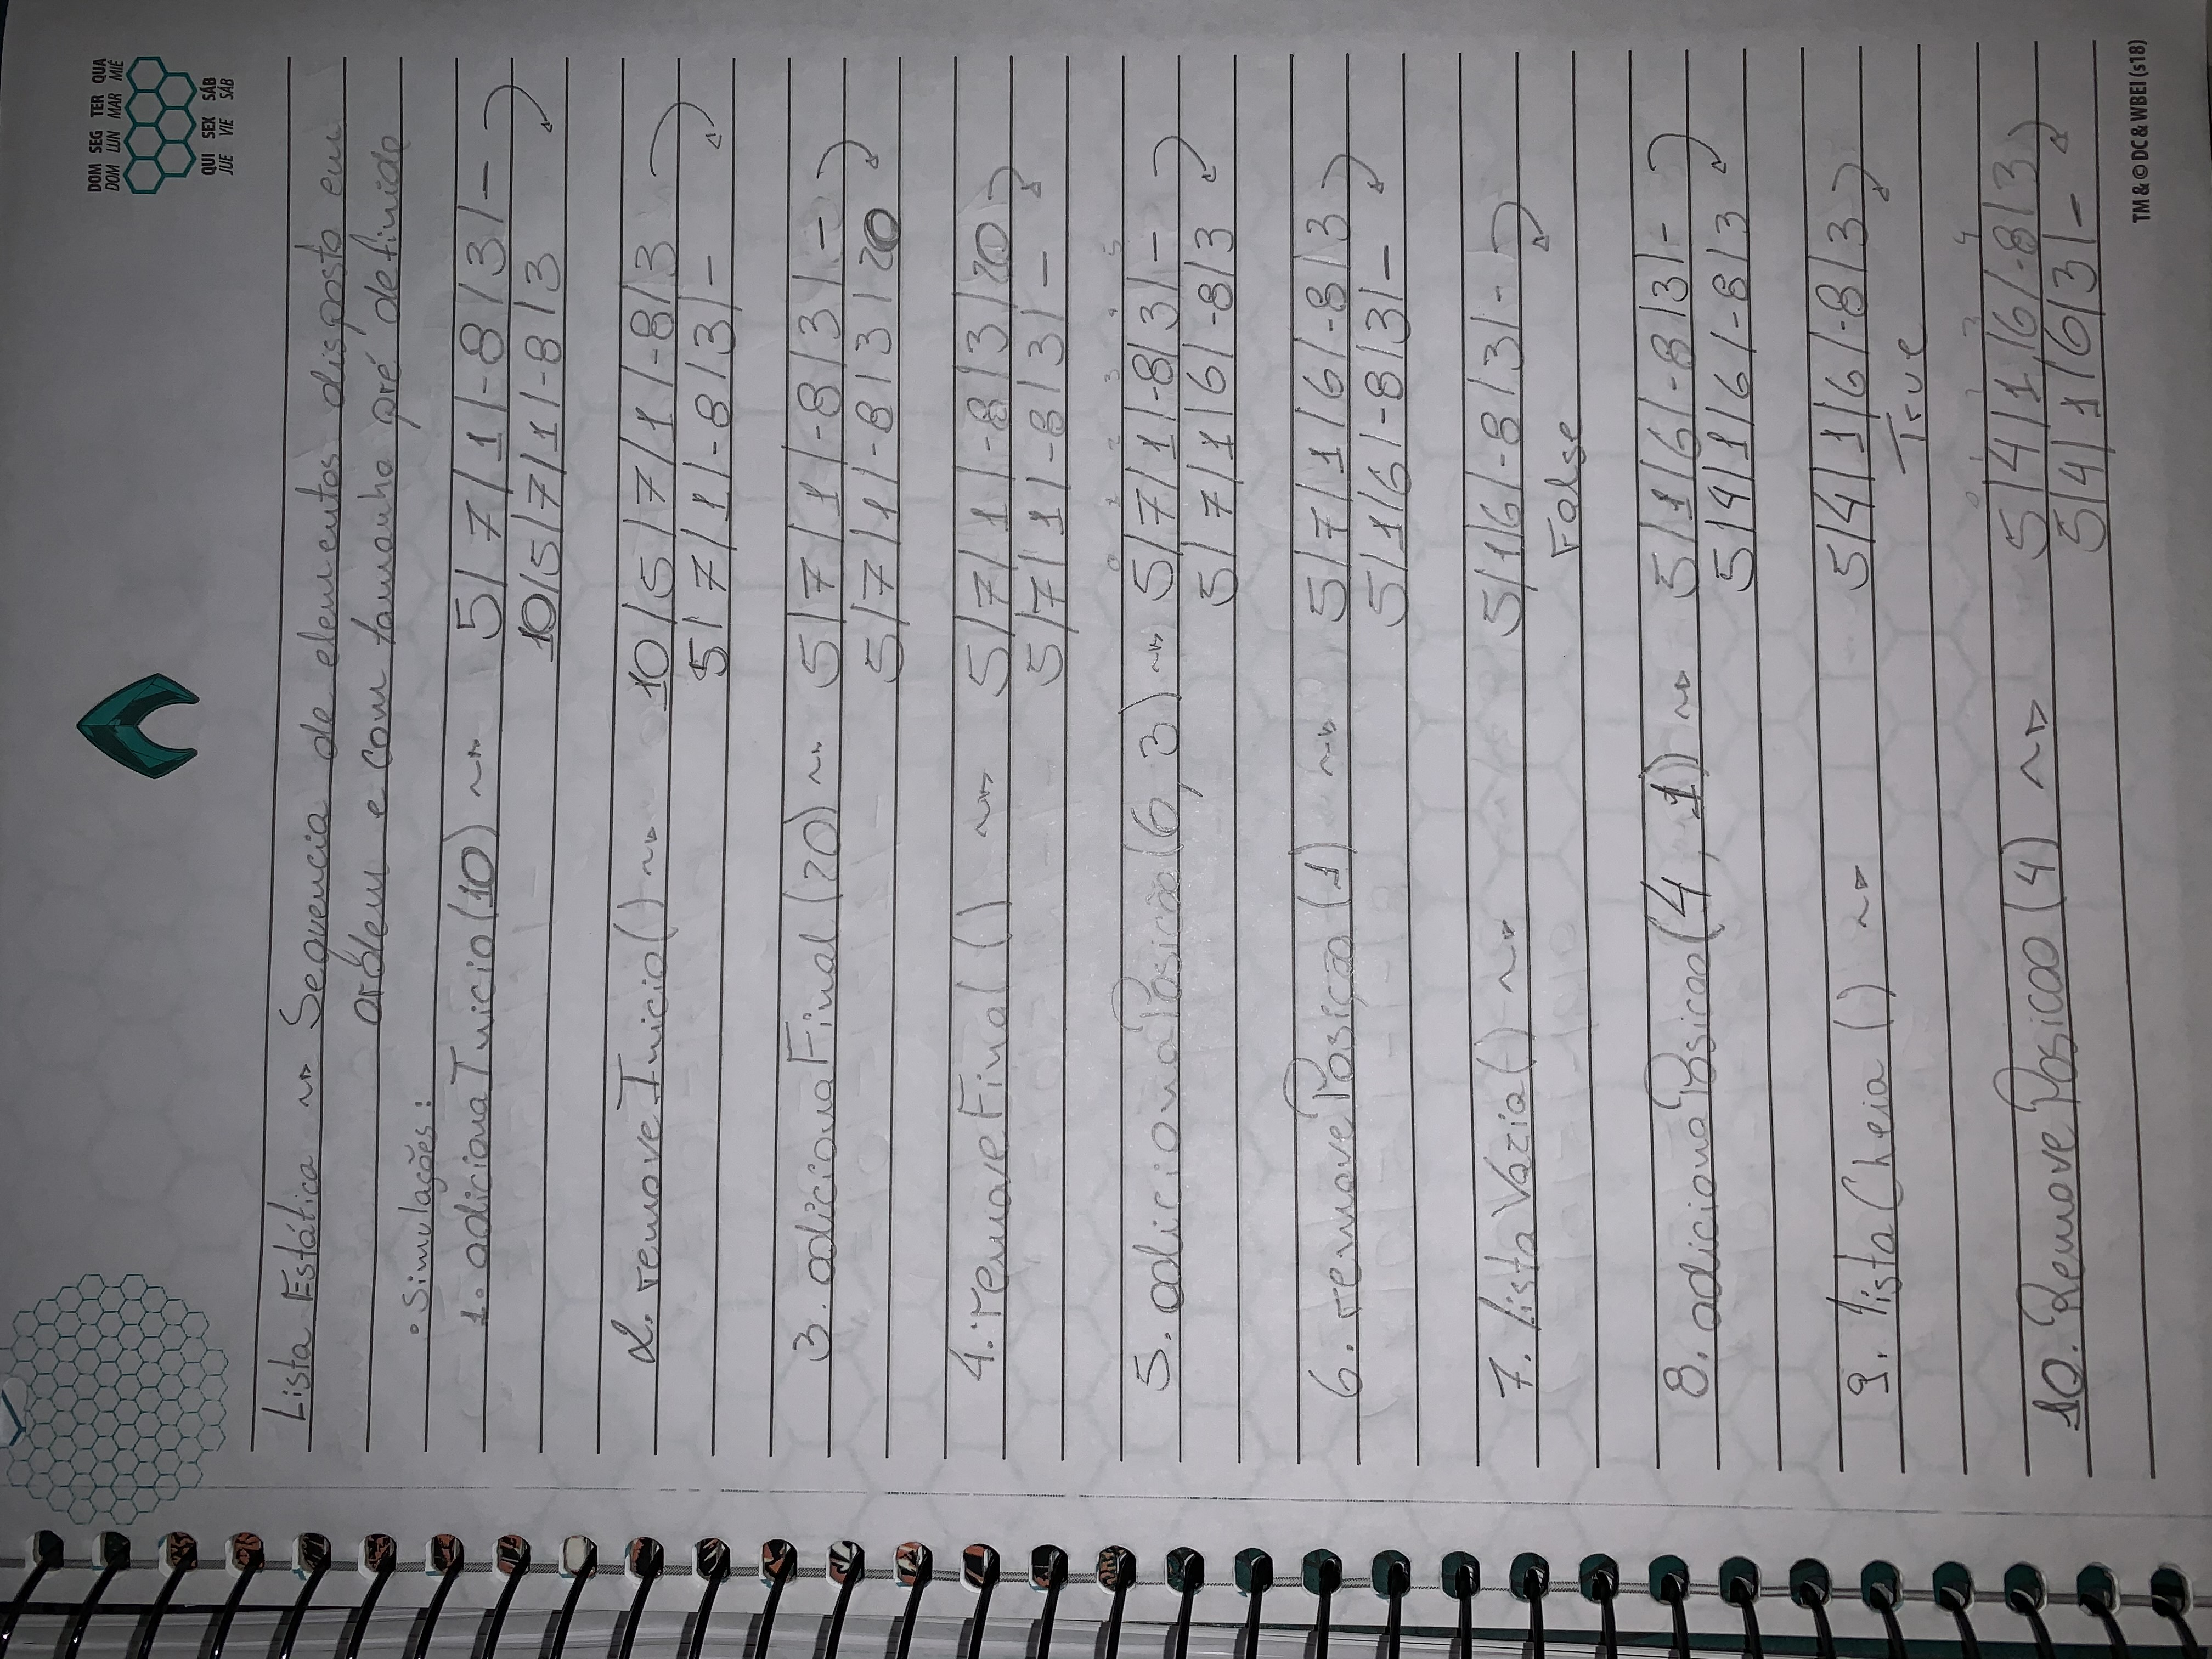 DOM SEG TER QUA
DOM LUN MAR MIÉ
QUI SEX SÁB
JUE VIE SÁB
Lista Estática ~> Sequencia de elementos disposto em
ordem e com tamanho pré definido
• Simulações:
1. adiciona Inicio (10) ~> 5/ 7/ 1/ -8/ 3/ -
10/5/7/1/-8/3
2. remove Inicio () ~> 10/5/7/1/-8/3
5/7/1/-8/3/-
3. adiciona Final (20) ~> 5/7/1/-8/3/-
5/7/1/-8/3/20
4. remove Final () ~> 5/7/1/-8/3/20
5/7/1/-8/3/-
0 1 2 3 4 5
5. adiciona Posicão (6, 3) ~> 5/7/1/-8/3/-
5/7/1/6/-8/3
6. remove Posição (1) ~> 5/7/1/6/-8/3
5/1/6/-8/3/-
7. lista Vazia () ~> 5/1/6/-8/3/-
False
8. adiciona Posicao (4, 1) ~> 5/1/6/-8/3/-
5/4/1/6/-8/3
9. lista Cheia () ~> 5/4/1/6/-8/3
True
0 1 2 3 4
10. Remove Posicao (4) ~> 5/4/1/6/-8/3
5/4/1/6/3/-
TM & © DC & WBEI (s18)